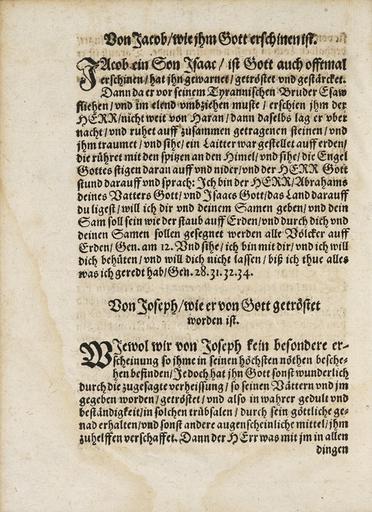 Von Jacob/wie jhm Gott erschinen ist.
JAcob ein Son Isaac/ ist Gott auch offtmal
erschinen/hat jhn gewarnet/getröstet vnd gestärcket.
Dann da er vor seinem Tyrannischen Bruder Esaw
fliehen/vnd im elend vmbziehen muste/ erschien jhm der
HERR/nicht weit von Haran/dann daselbs lag er vber
nacht/vnd ruhet auff zusammen getragenen steinen/vnd
jhm traumet/vnd sihe/ein Laitter war gestellet auff erden/
die rühret mit den spitzen an den Himel/vnd sihe/die Engel
Gottes stigen daran auff vnd nider/vnd der HERR Gott
stund darauff vnd sprach: Ich bin der HERR/Abrahams
deines Vatters Gott/vnd Isaacs Gott/das Land darauff
du ligest/will ich dir vnd deinem Samen geben/vnd dein
Sam soll sein wie der staub auff Erden/vnd durch dich vnd
deinen Samen sollen gesegnet werden alle Völcker auff
Erden/Gen. am 12. Vnd sihe/ich bin mit dir/vnd ich will
dich behüten/vnd will dich nicht lassen/ biß ich thue alles
was ich geredt hab/Gen. 28. 31. 32. 34.
Von Joseph/wie er von Gott getröstet
worden ist.
WJewol wir von Joseph kein besondere er-
scheinung so jhme in seinen höchsten nöthen besche-
hen befinden/Jedoch hat jhn Gott sonst wunderlich
durch die zugesagte verheissung/so seinen Vättern vnd jm
gegeben worden/getröstet/vnd also in wahrer gedult vnd
beständigkeit/in solchen trübsalen/durch sein göttliche ge-
nad erhalten/vnd sonst andere augenscheinliche mittel/jhm
zuhelffen verschaffet. Dann der HErr was mit jm in allen
dingen